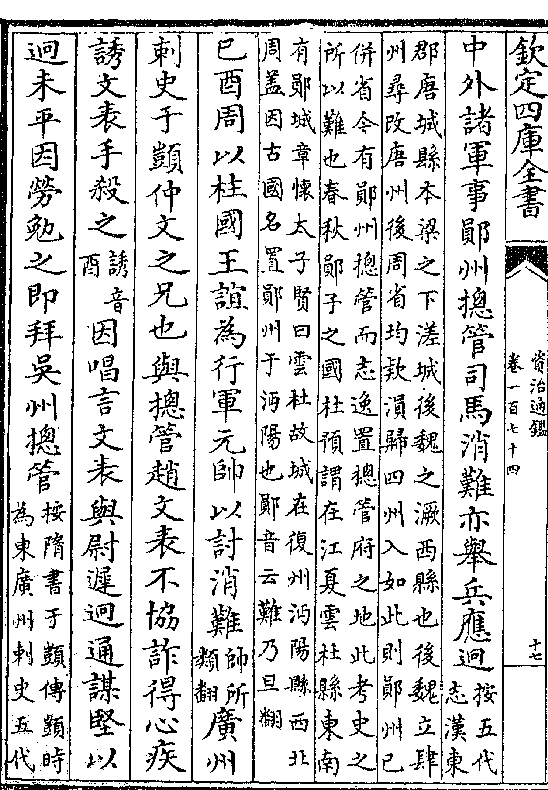 欽定四庫全書
資治通鑑
卷一百七十四
十七
中外諸軍事鄖州摠管司馬消難亦舉兵應迥
按五代
志漢東
郡唐城縣本梁之下溠城後魏之㵐西縣也後魏立肆
州尋改唐州後周省均款溳歸四州入如此則鄖州已
併省今有鄖州摠管而志逸置摠管府之地此考史之
所以難也春秋鄖子之國杜預謂在江夏雲杜縣東南
有鄖城章懷太子賢曰雲杜故城在復州沔陽縣西北
周盖因古國名置鄖州于沔陽也鄖音云難乃旦翻
巳酉周以柱國王誼為行軍元帥以討消難
帥所
類翻
廣州
刺史于顗仲文之兄也與摠管趙文表不協詐得心疾
誘文表手殺之
誘音
酉
因唱言文表與尉遲迥通謀堅以
迥未平因勞勉之即拜吳州摠管
按隋書于顗傳顗時
為東廣州刺史五代